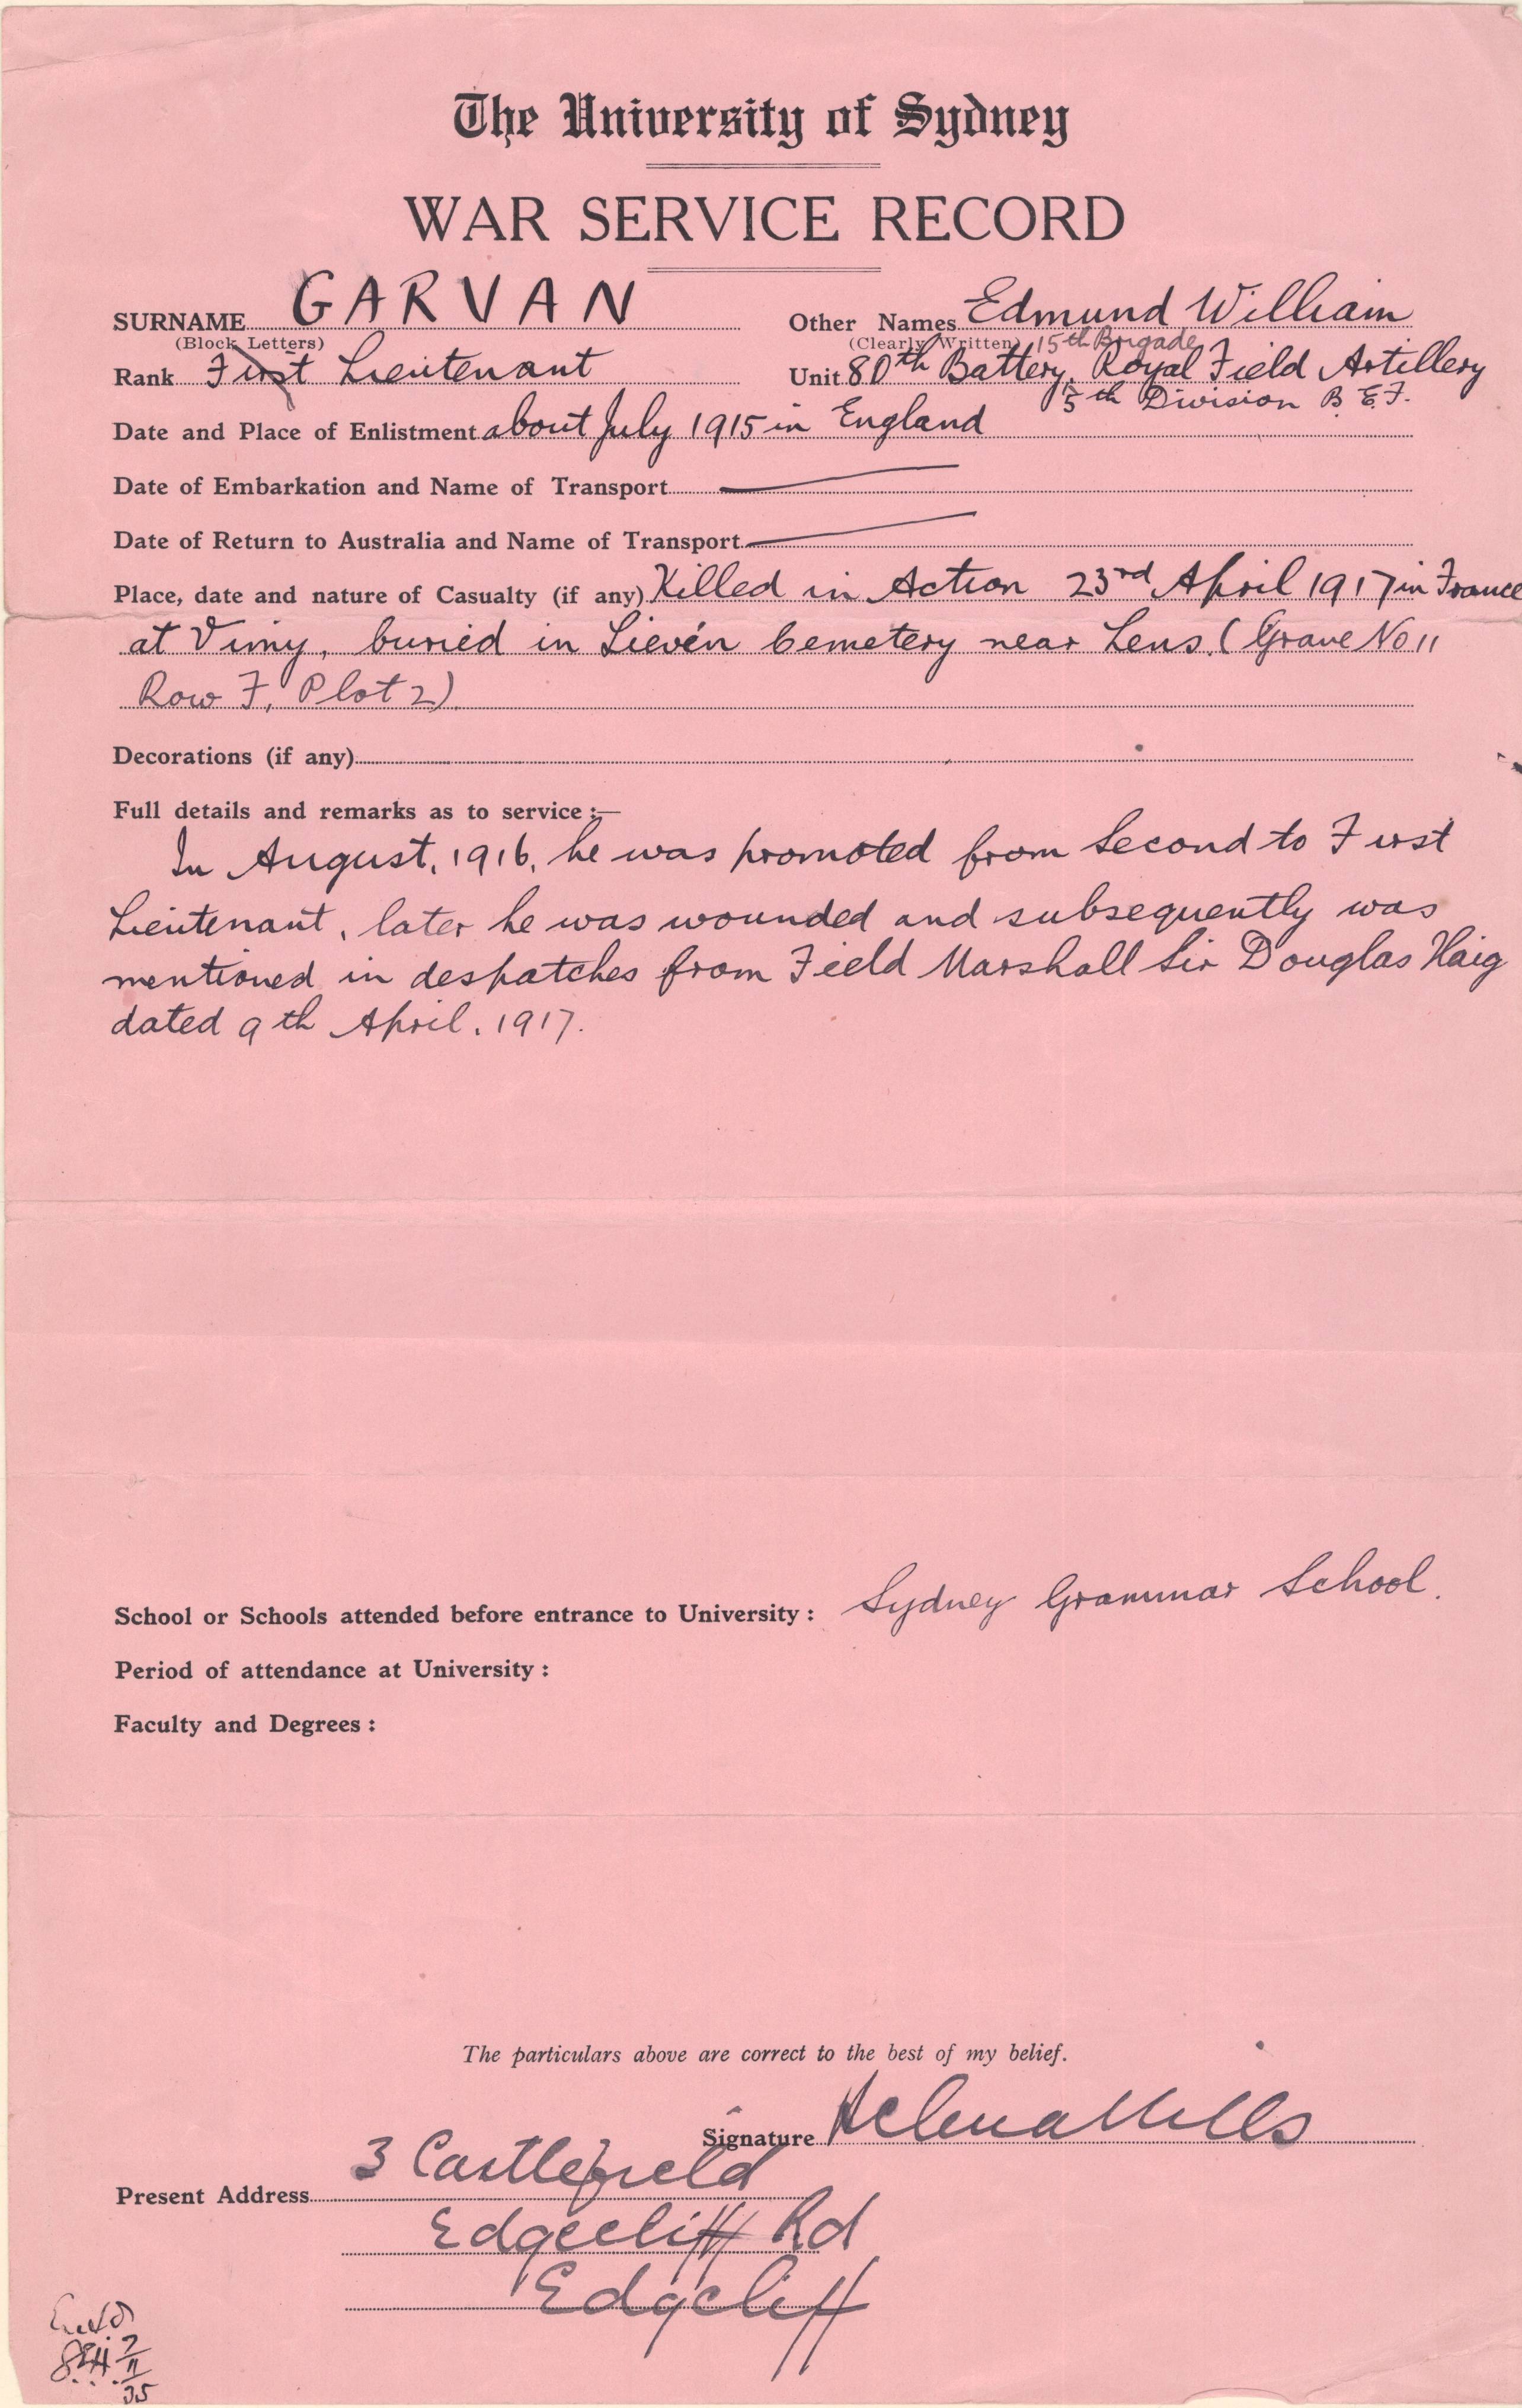 The University of Sydney
WAR SERVICE RECORD
SURNAME GARVAN Other Names Edmund William
(Block Letters) (Clearly Written) 15th Brigade
Rank First Lieutenant Unit 80th Battery, Royal Field Artillery
5th Division B.E.F.
Date and Place of Enlistment about July 1915 in England
Date of Embarkation and Name of Transport
Date of Return to Australia and Name of Transport
Place, date and nature of Casualty (if any) Killed in Action 23rd April 1917 in France
at Vimy, buried in Lievén Cemetery near Lens. (Grave No 11
Row F, Plot 2)
Decorations (if any)
Full details and remarks as to service :—
In August, 1916, he was promoted from Second to First
Lieutenant, later he was wounded and subsequently was
mentioned in despatches from Field Marshall Sir Douglas Haig
dated 9th April, 1917.
School or Schools attended before entrance to University : Sydney Grammar School.
Period of attendance at University :
Faculty and Degrees :
The particulars above are correct to the best of my belief.
Signature Helena Mills
Present Address 3 Castlefield
Edgecliff Rd
Edgcliff
7/11/35